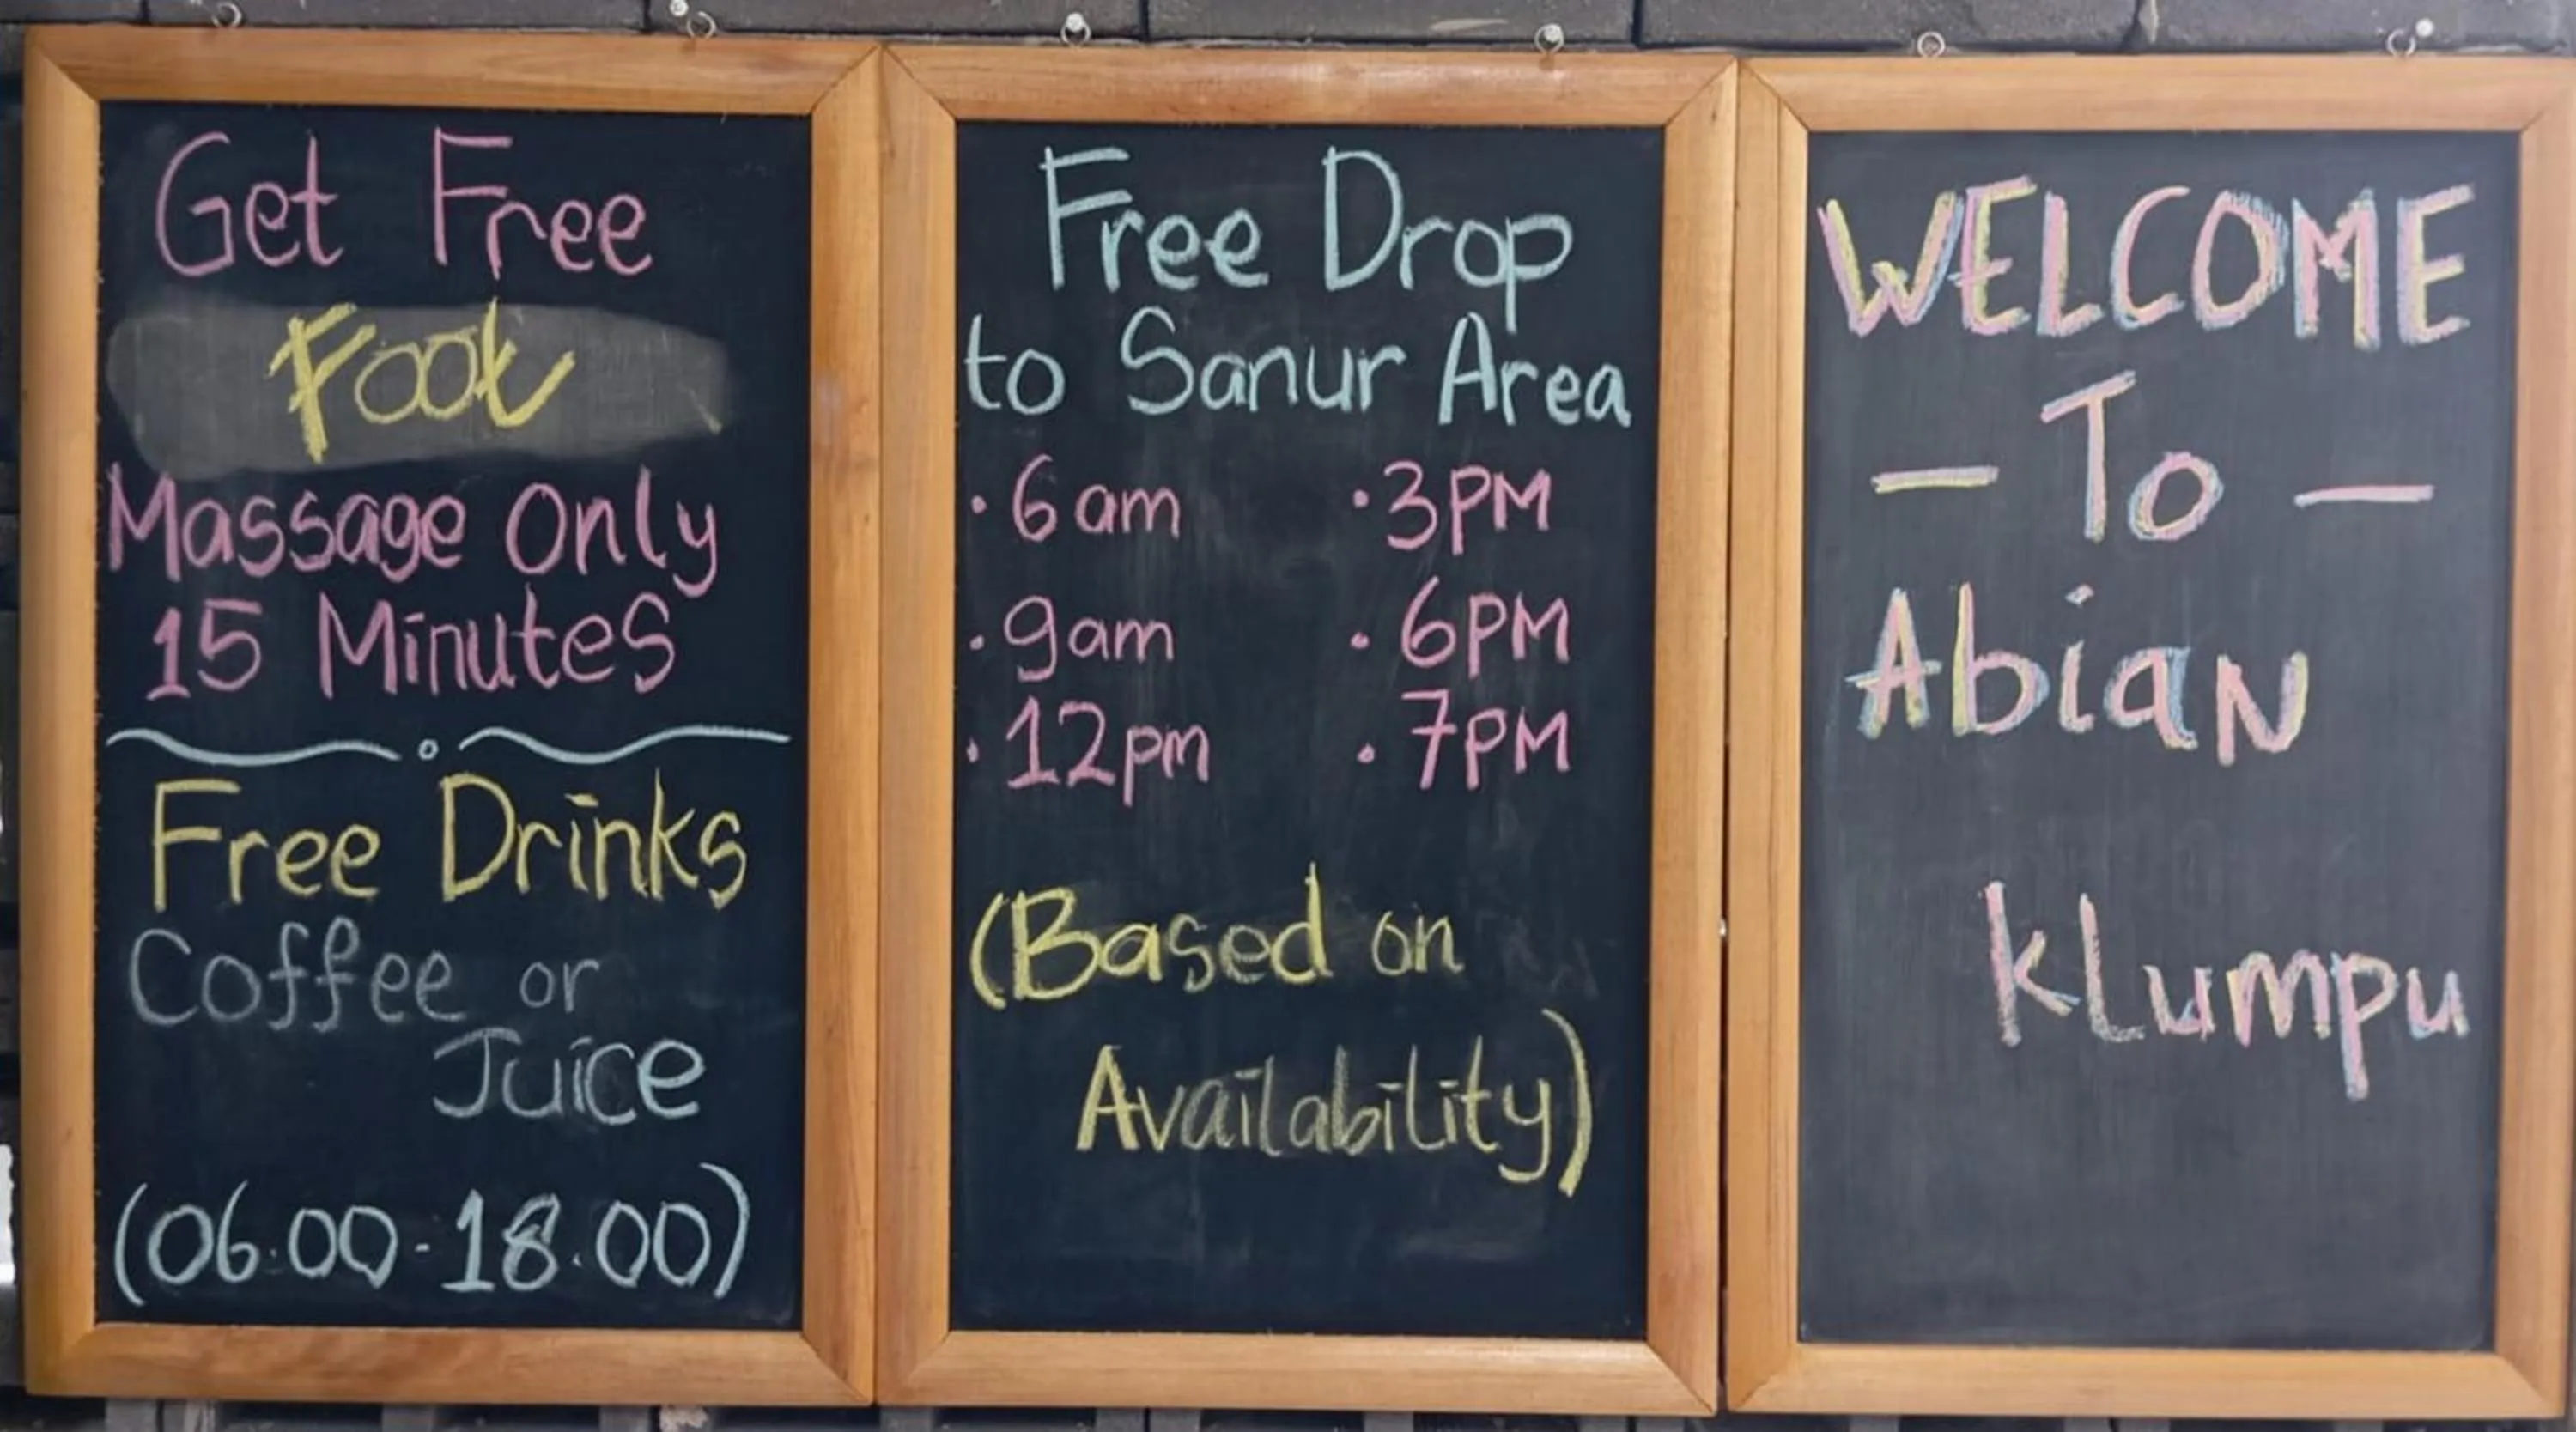 Get Free
Foot
Massage Only
15 Minutes
Free Drinks
Coffee or
Juice
(06.00-18.00)
Free Drop
to Sanur Area
• 6 am
• 9am
• 12pm
• 3PM
• 6PM
• 7PM
(Based on
Availability)
WELCOME
- To -
AbiaN
kLumpu